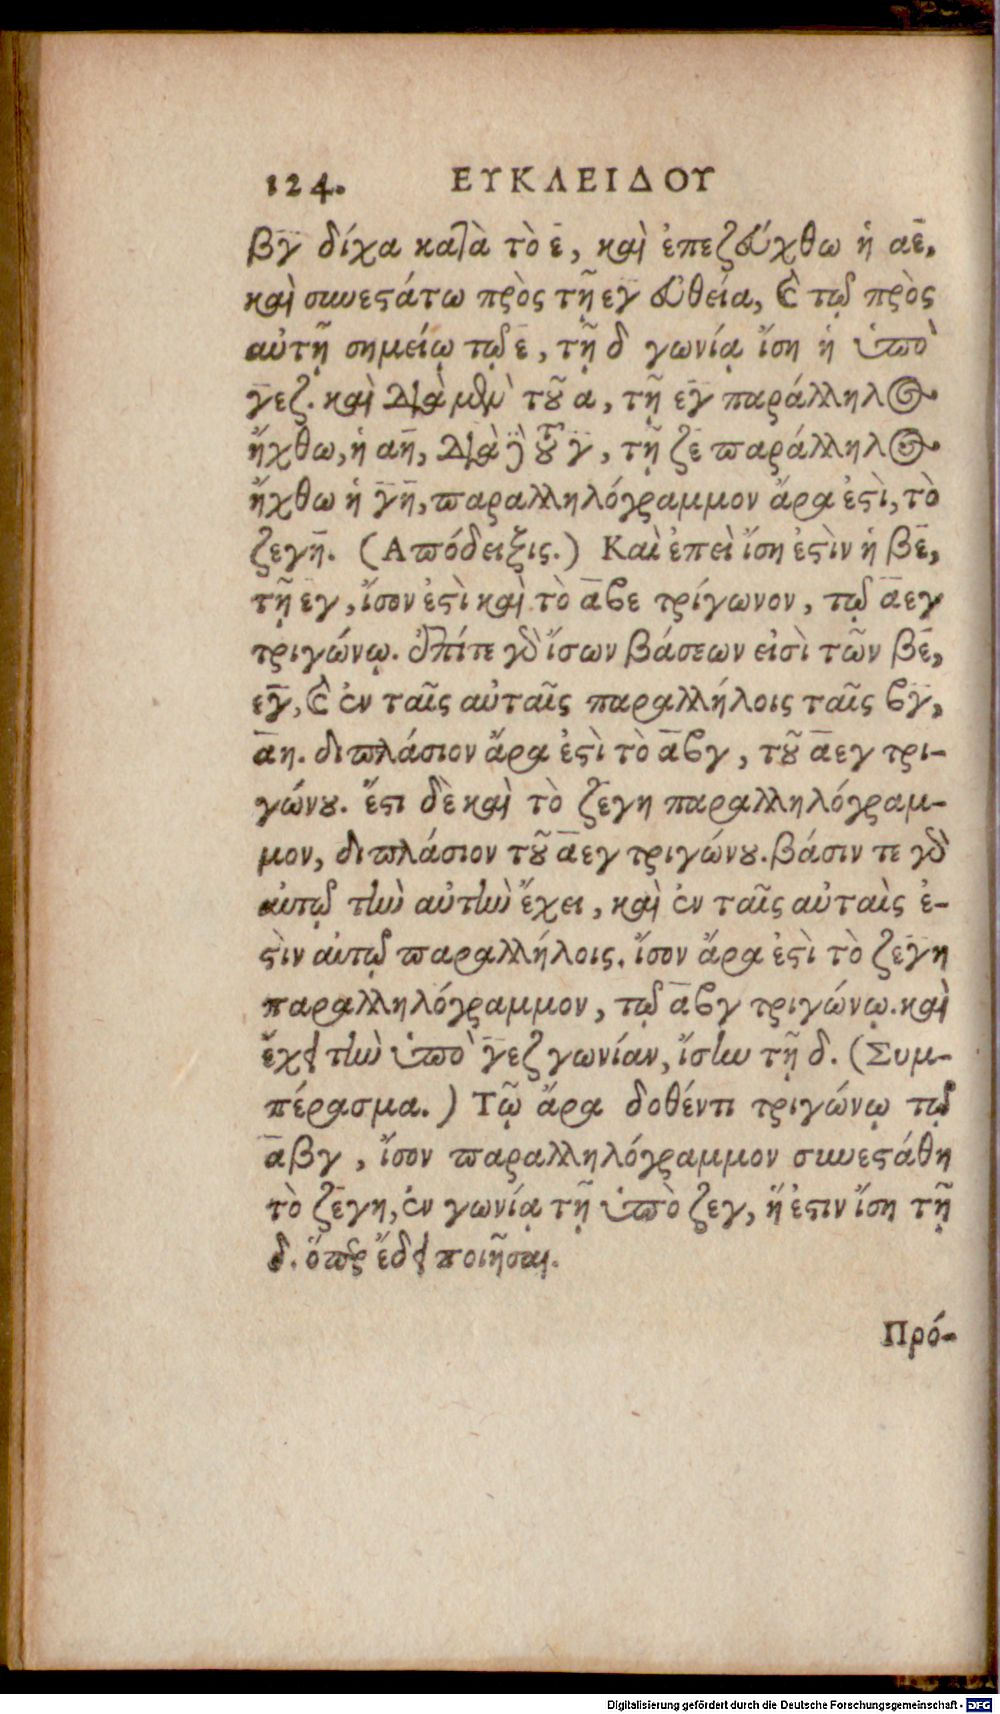 124. ΕΥΚΛΕΙΔΟΥ
βγ δίχα κατὰ τὸ ε̄, καὶ ἐπεζεύχθω ἡ αε̄.
καὶ συνεστάτω πρὸς τῇ εγ εὐθεία, καὶ τῷ πρὸς
αὐτῇ σημείῳ τῷ ε̄, τῇ δ γωνίᾳ ἴση ἡ ὑπὸ
γ̄εζ. καὶ διὰ μὲν τοῦ α, τῇ εγ̄ παράλληλος
ἤχθω, ἡ αη̄, διὰ δὲ τοῦ γ̄, τῇ ζε̄ παράλληλος
ἤχθω ἡ γ̄η̄, παραλληλόγραμμον ἄρα ἐστὶ, τὸ
ζεγη̄. (Απόδειξις.) Καὶ ἐπεὶ ἴση ἐστὶν ἡ βε̄,
τῇ εγ, ἴσον ἐστὶ καὶ τὸ ᾱβε τρίγωνον, τῷ ᾱεγ
τριγώνῳ. ἐπίτε γὰρ ἴσων βάσεων εἰσὶ τῶν βε̄,
εγ̄, καὶ ἐν ταῖς αὐταῖς παραλλήλοις ταῖς βγ̄,
ᾱη. διπλάσιον ἄρα ἐστὶ τὸ ᾱβγ, τοῦ ᾱεγ τρι-
γώνου. ἔστι δὲ καὶ τὸ ζε̄γη παραλληλόγραμ-
μον, διπλάσιον τοῦ ᾱεγ τριγώνου. βάσιν τε γὰρ
αὐτῷ τὴν αὐτὴν ἔχει, καὶ ἐν ταῖς αὐταὶς ἐ-
στὶν αὐτῷ παραλλήλοις. ἴσον ἄρα ἐστὶ τὸ ζεγ̄η
παραλληλόγραμμον, τῷ ᾱβγ τριγώνῳ. καὶ
ἔχει τὴν ὑπὸ γ̄εζ γωνίαν, ἴσην τῇ δ. (Συμ-
πέρασμα.) Τῷ ἄρα δοθέντι τριγώνῳ τῷ
ᾱβγ, ἴσον παραλληλόγραμμον συνεστάθη
τὸ ζε̄γη, ἐν γωνίᾳ τῇ ὑπὸ ζεγ, ἥ ἐστιν ἴση τῇ
δ. ὅπερ ἔδει ποιῆσαι.
Πρό-
Digitalisierung gefördert durch die Deutsche Forschungsgemeinschaft - DFG